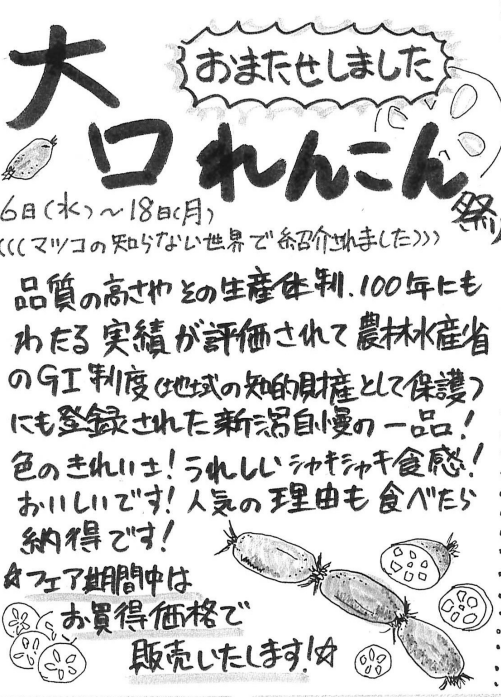 おまたせしました
大口れんこん祭り
6日(水)~18日(月)
(((マツコの知らない世界で紹介されました)))
品質の高さやその生産体制、100年にも
わたる実績が評価されて農林水産省
のGI制度(地域の知的財産として保護)
にも登録された新潟自慢の一品!
色のきれいさ!うれしいシャキシャキ食感!
おいしいです!人気の理由も食べたら
納得です!
☆フェア期間中は
お買得価格で
販売いたします!☆